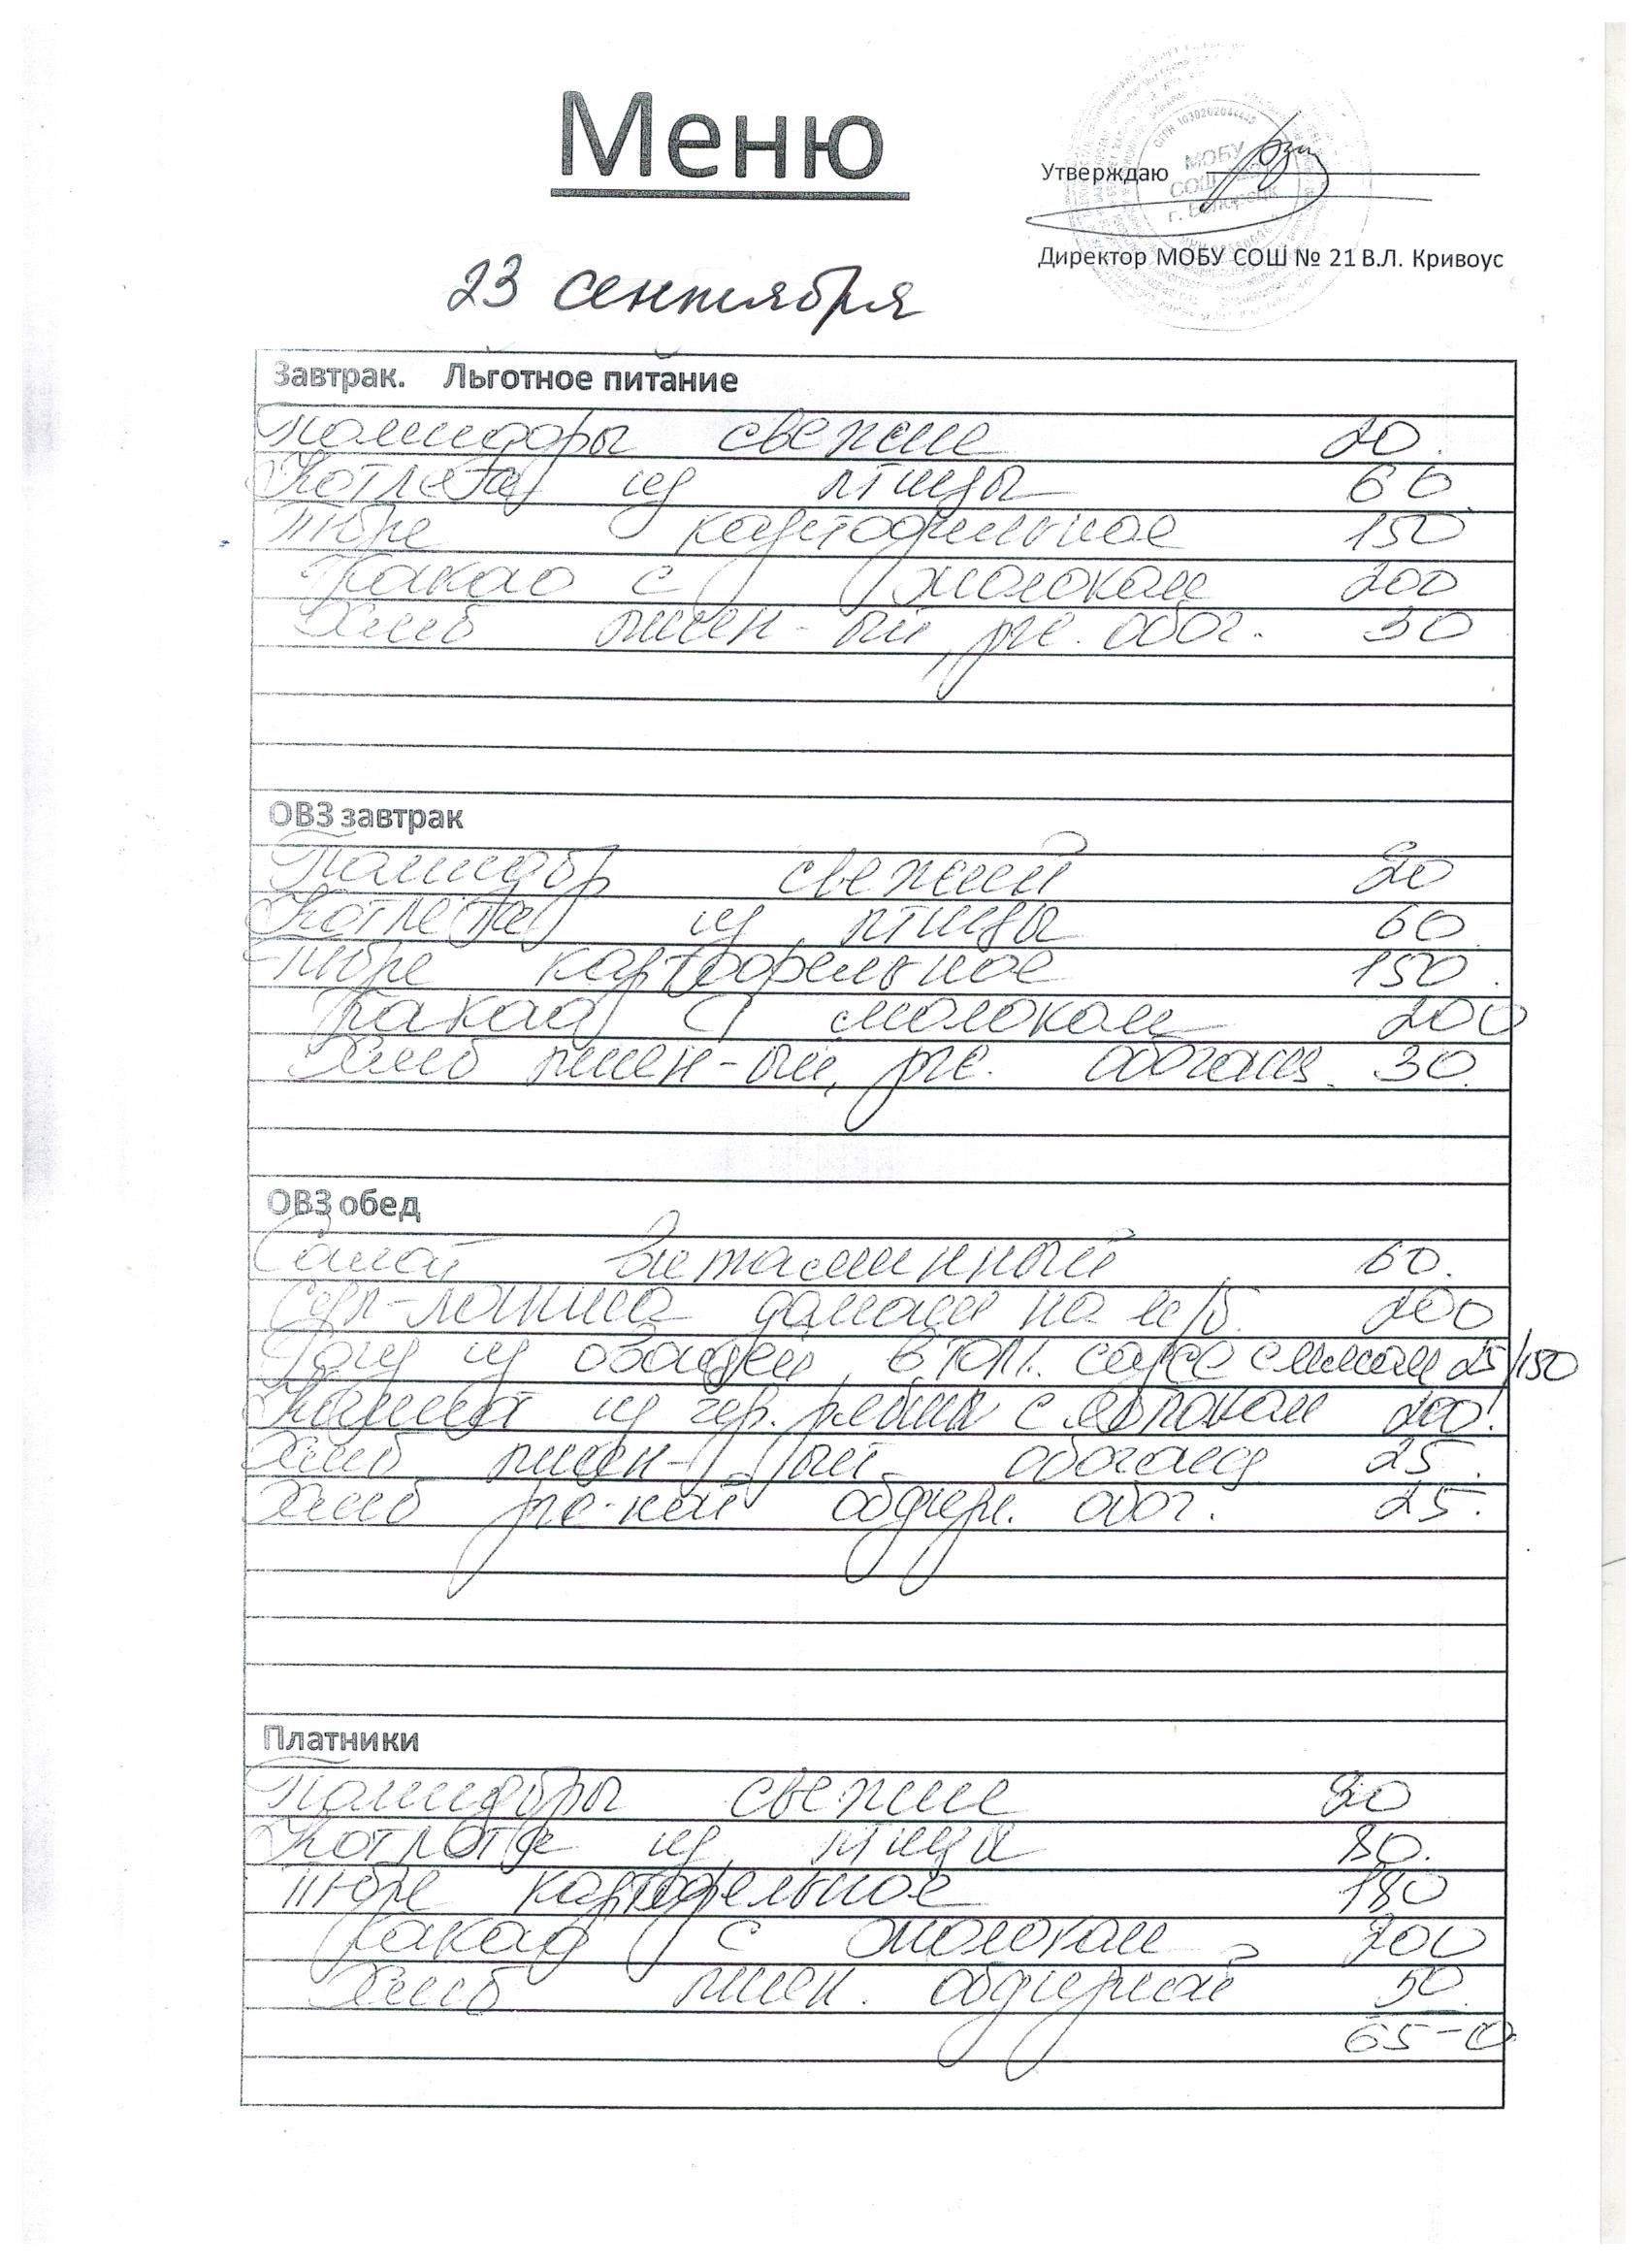 Меню
ОГРН 1030202044445
МОБУ
СОШ
г. Белорецк
Утверждаю
Директор МОБУ СОШ № 21 В.Л. Кривоус
23 сентября
Завтрак. Льготное питание
Помидоры свежие 20.
Котлета из птицы 60
Пюре картофельное 150
Какао с молоком 200
Хлеб пшен-ый, рж. обог. 30
ОВЗ завтрак
Помидор свежий 20
Котлета из птицы 60
Пюре картофельное 150.
Какао с молоком 200
Хлеб пшен-ый, рж. обогащ. 30.
ОВЗ обед
Салат витаминный 60.
Суп-лапша домаш на м/б. 200
Рагу из овощей, в том. соусе с мясом 25/150
Компот из чер. рябины с яблоком 200.
Хлеб пшен-ый обогащ 25.
Хлеб рж-ной обдирн. обог. 25.
Платники
Помидоры свежие 20
Котлета из птицы 80.
Пюре картофельное 180
Какао с молоком 200
Хлеб пшен. обдирной 50.
65-0